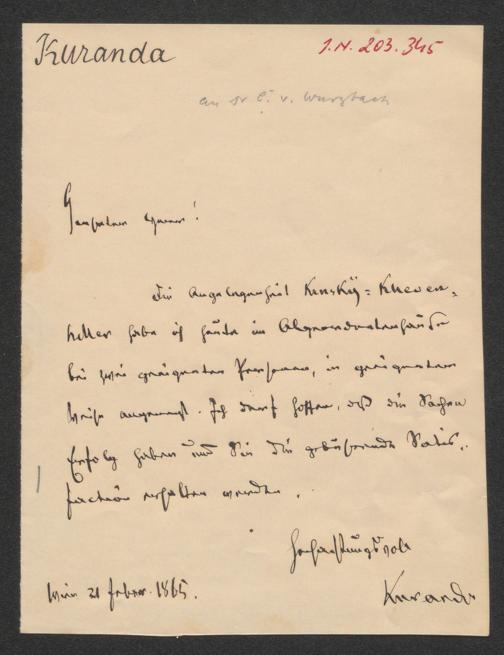 Kuranda
I. N. 203.345
an Dr C. v. Wurzbach
Geehrter Herr!
Die Angelegenheit Kinsky-Kheven-
hiller habe ich heute im Abgeordnetenhause
bei zwei geeigneten Personen, in geeigneter
Weise angeregt. Ich darf hoffen, daß die Sachen
Erfolg haben und Sie die gebührende Satis-
faction erhalten werden.
Hochachtungsvoll
Wien 21 Feber. 1865.
Kuranda